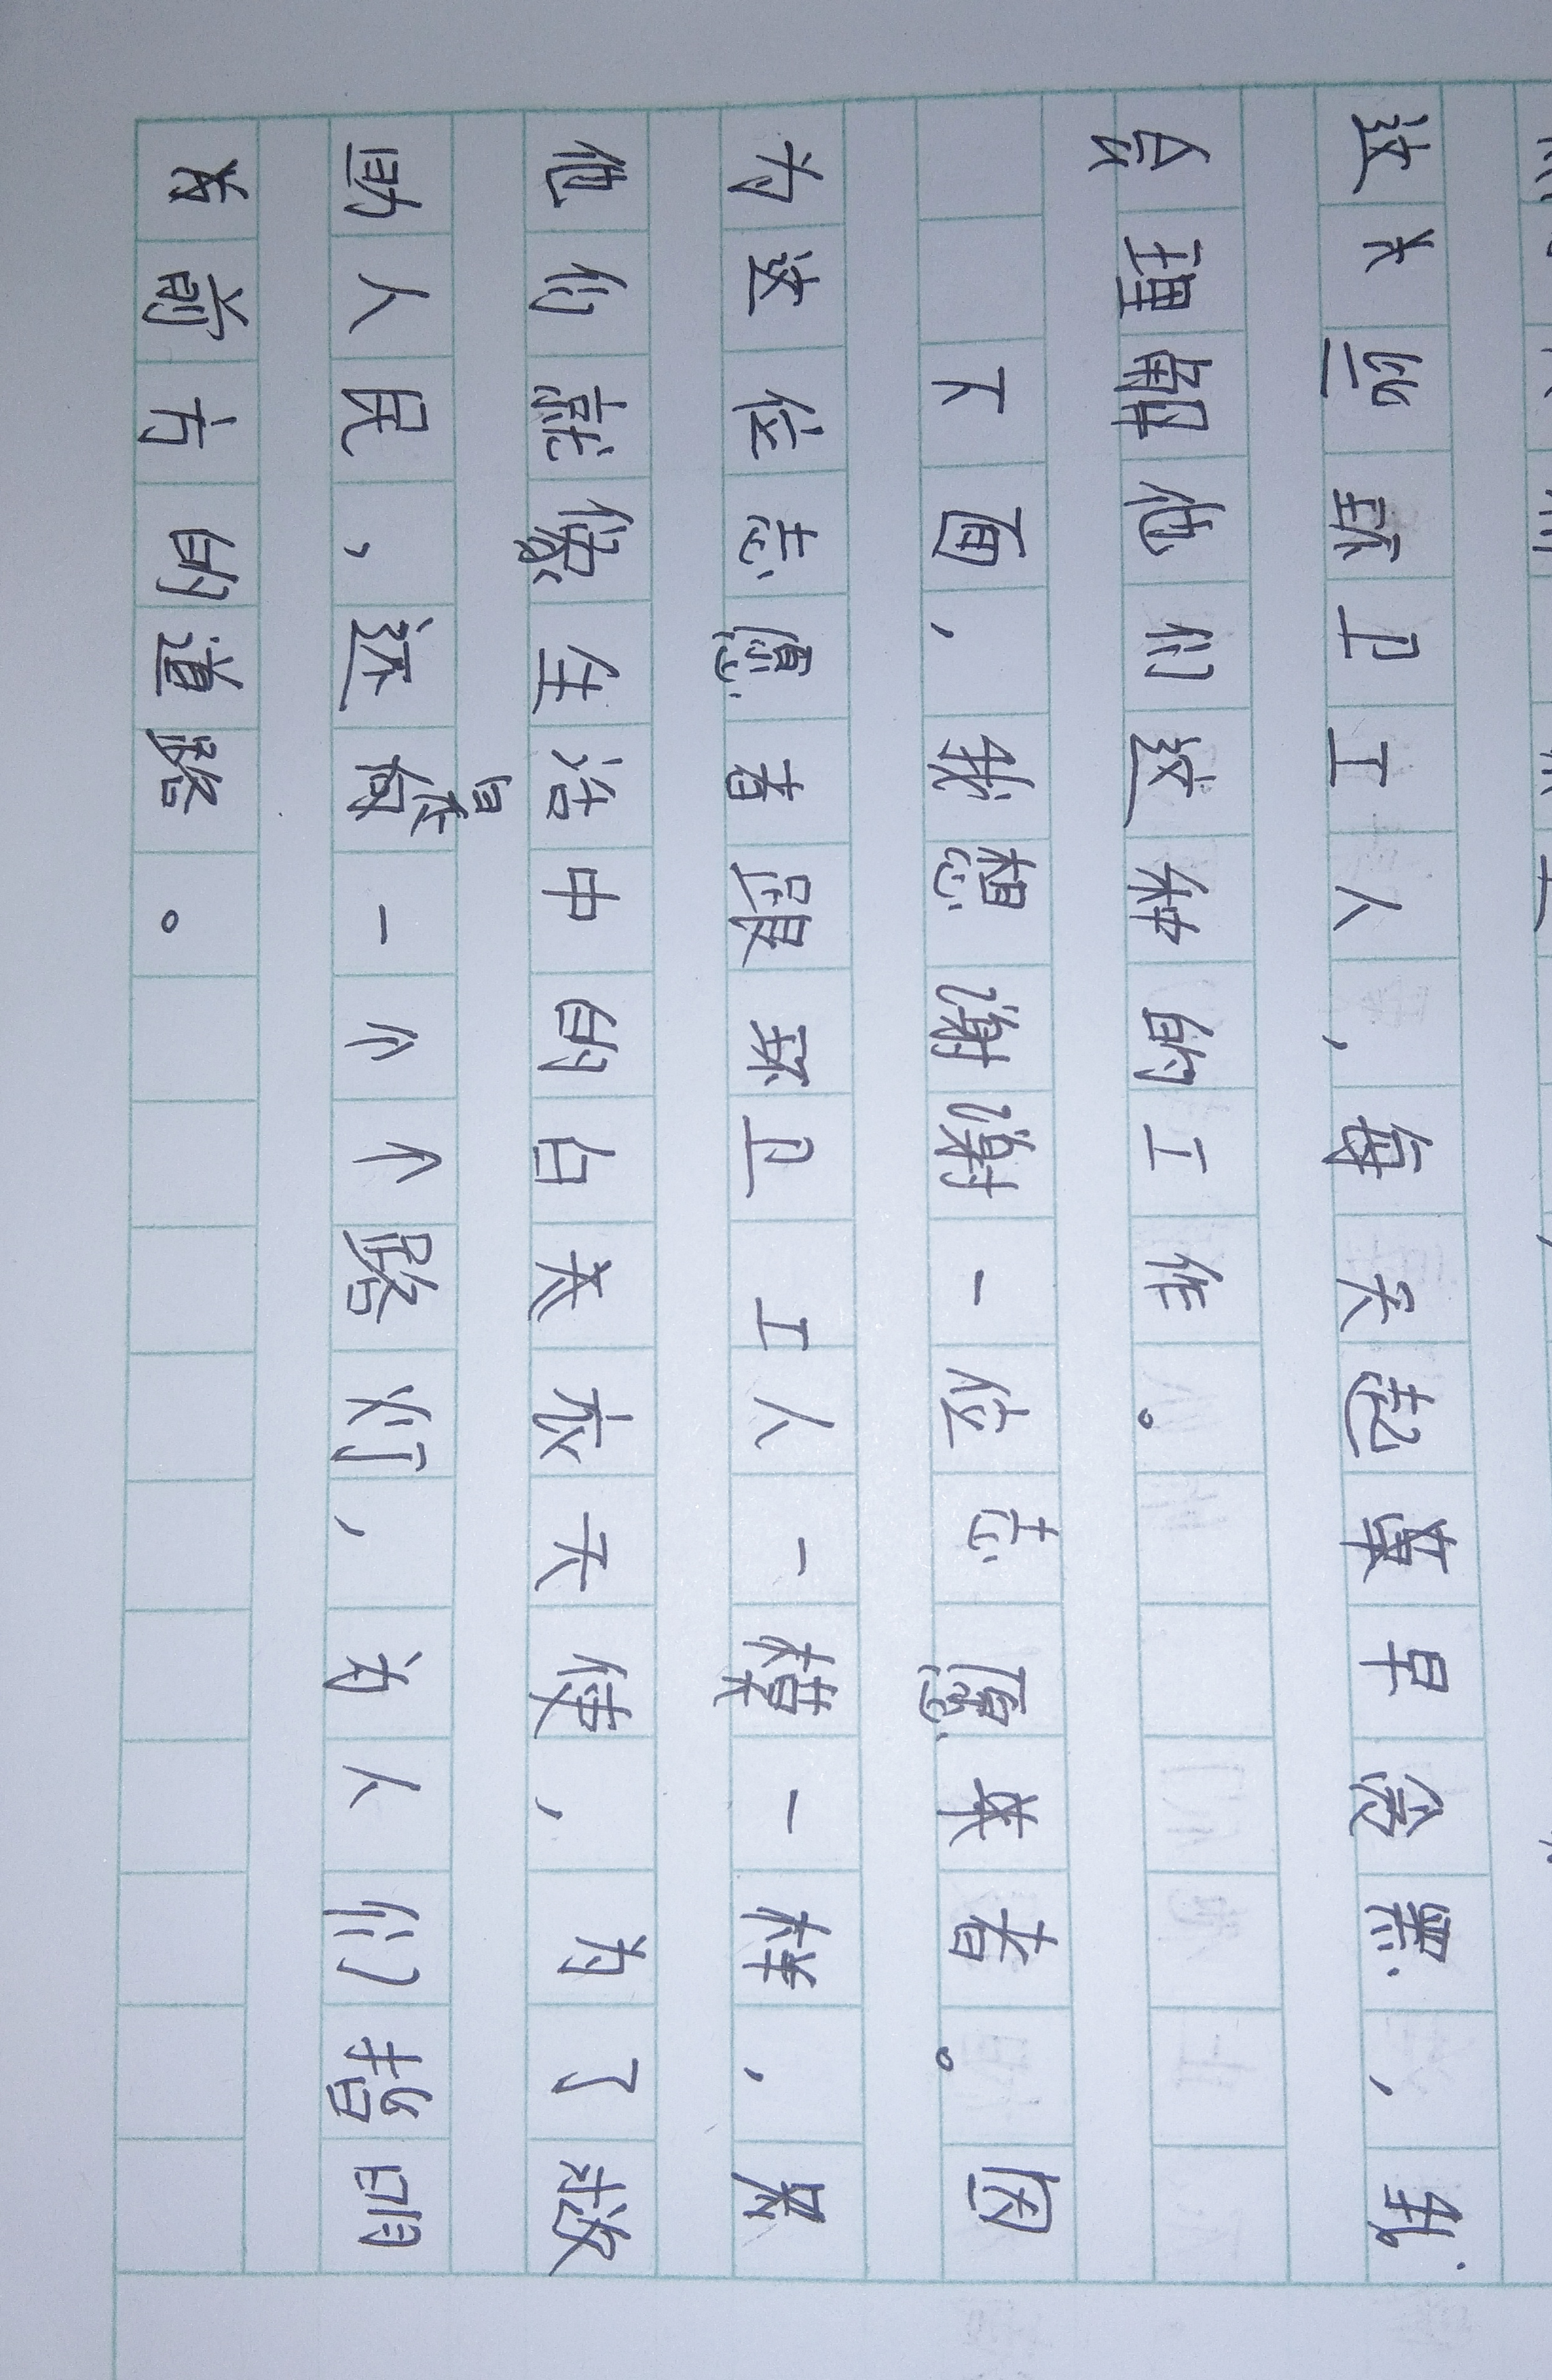 这环卫工人，每天起早黑，我
会理解你们这样的工作。
下面，我想谢谢一位志愿者。因
为这位志愿者跟环卫工人一模一样，
他们就像生活中的白衣天使，为了救
助人民，还像一小个路灯，为人们照明
前方的道路。